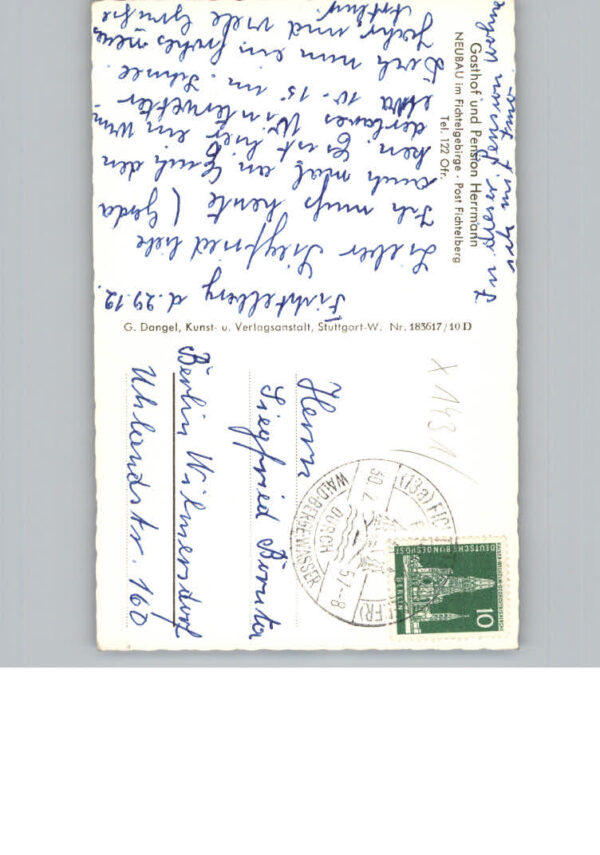 Gasthof und Pension Herrmann
NEUBAU im Fichtelgebirge · Post Fichtelberg
Tel. 122 Ofr.
Fichtelberg d. 29.12.
Lieber Siegfried liebe
Ich muß heute (Gerda
auch mal an Euch den
ken. Es ist hier ein wun
derbares Winterwetter
etwa 10-15 m. Schnee.
Euch nun ein frohes neues
Jahr und viele Grüße
Arthur
In dieser Pension
G. Dangel, Kunst- u. Verlagsanstalt, Stuttgart-W. Nr. 183617/10 D
X 1431
Herrn
Siegfried
Berlin Wilmersdorf
Uhlandstr. 160
(13a)
30.
57-8
DURCH
WALD·BERGE·WASSER
DEUTSCHE BUNDESPOST
BERLIN
10